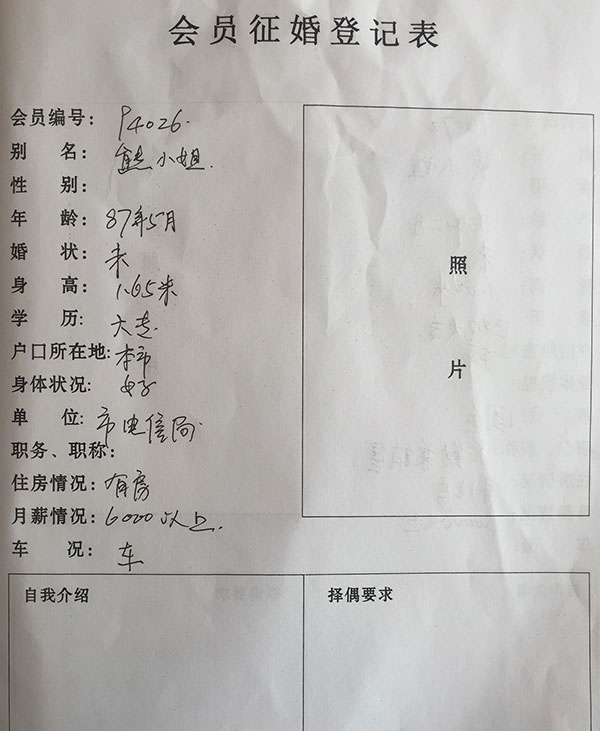 会员征婚登记表
会员编号：94026.
别 名：熊小姐.
性 别：
年 龄：87年5月
婚 状：未
身 高：1.65米
学 历：大专
户口所在地：本市
身体状况：好
单 位：市电信局.
职务、职称：
住房情况：有房
月薪情况：6000以上.
车 况：车
照
片
自我介绍
择偶要求